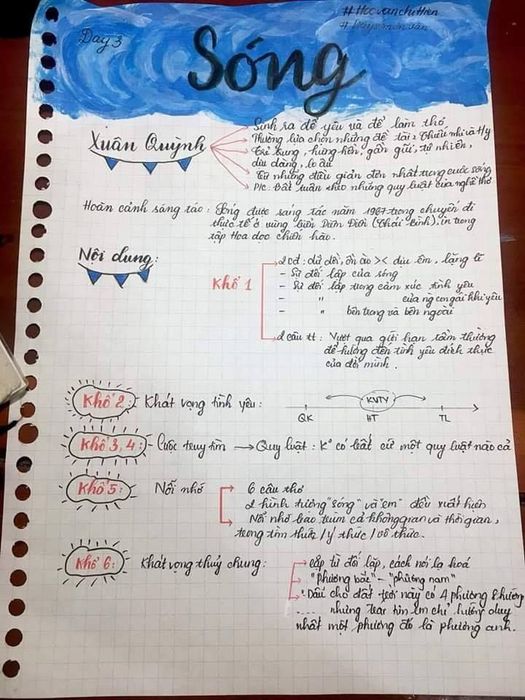 #Hocvanchihien
Day 3
Sóng
Xuân Quỳnh
Sinh ra để yêu và để làm thơ
Thường lựa chọn những đề tài: Thiếu nhi và
hưng hên, gần gũi, tự nhiên,
dịu dàng, lo âu
Từ những điều giản đơn nhất trong cuộc sống
P/c: Bất tuân theo những quy luật của nghệ thơ
Hoàn cảnh sáng tác: Sóng được sáng tác năm 1967 trong chuyến đi
thực tế ở vùng biển Diêm Điền (Thái Bình), in trong
tập Hoa dọc chiến hào.
Nội dung:
Khổ 1
2 cđ: dữ dội, ồn ào >< dịu êm, lặng lẽ
- Sự đối lập của sóng
- Sự đối lập trong cảm xúc tình yêu
- " của ng con gái khi yêu
- " bên trong và bên ngoài
2 câu tt: Vượt qua giới hạn tầm thường
để hướng đến tình yêu đích thực
của đời mình.
Khổ 2: Khát vọng tình yêu:
KVTY
QK HT TL
Khổ 3,4: Cuộc truy tìm → Quy luật: K° có bất cứ một quy luật nào cả
Khổ 5: Nỗi nhớ
6 câu thơ
2 hình tượng "sóng" và "em" đều xuất hiện
Nỗi nhớ bao trùm cả không gian và thời gian,
trong tiềm thức / ý thức / vô thức.
Khổ 6: Khát vọng thuỷ chung:
cặp từ đối lập, cách nói lạ hoá
"phương bắc" - "phương nam"
"Dẫu cho đất trời này có 4 phương 8 hướng
.... nhưng trái tim em chỉ hướng duy
nhất một phương đó là phương anh.